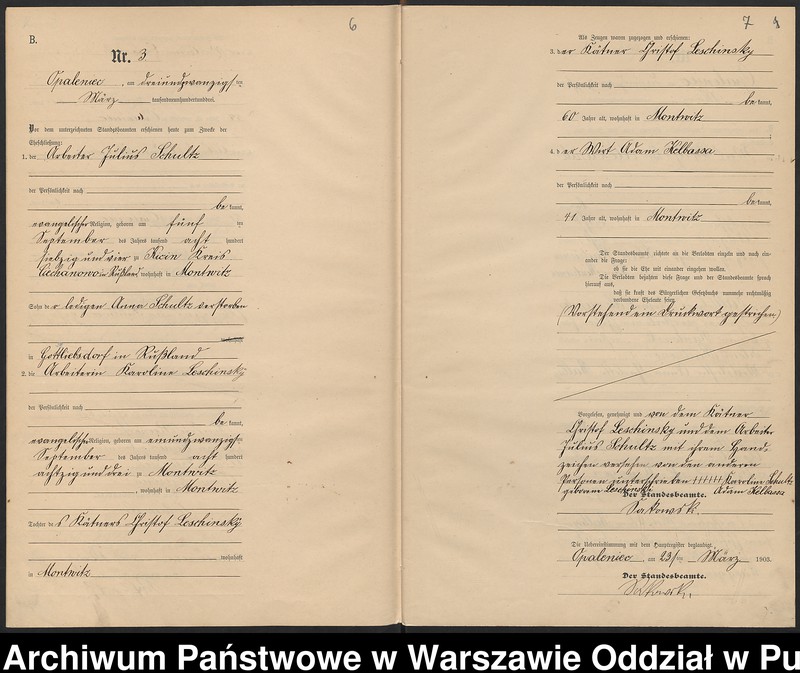 6
B.
Nr. 3
Opaleniec, am dreiundzwanzigsten
März tausendneunhundertunddrei.
Vor dem unterzeichneten Standesbeamten erschienen heute zum Zwecke der
Eheschließung:
1. der Arbeiter Julius Schultz
der Persönlichkeit nach
be kannt,
evangelischer Religion, geboren am fünften
September des Jahres tausend acht hundert
siebzig und vier zu Kreis
Ciechanowo in Rußland wohnhaft in Montwitz
Sohn der ledigen Anna Schultz verstorben
in Gottliebsdorf in Rußland
2. die Arbeiterin Karoline Leschinsky
der Persönlichkeit nach
be kannt,
evangelischer Religion, geboren am einundzwanzigsten
September des Jahres tausend acht hundert
achtzig und drei zu Montwitz
, wohnhaft in Montwitz
Tochter des Kätners Christof Leschinsky
wohnhaft
in Montwitz
7
Als Zeugen waren zugezogen und erschienen:
3. der Kätner Christof Leschinsky
der Persönlichkeit nach
be kannt,
60 Jahre alt, wohnhaft in Montwitz
4. der Wirt Adam Kelbassa
der Persönlichkeit nach
be kannt,
41 Jahre alt, wohnhaft in Montwitz
Der Standesbeamte richtete an die Verlobten einzeln und nach ein-
ander die Frage:
ob sie die Ehe mit einander eingehen wollen.
Die Verlobten bejahten diese Frage und der Standesbeamte sprach
hierauf aus,
daß sie kraft des Bürgerlichen Gesetzbuchs nunmehr rechtmäßig
verbundene Eheleute seien.
(Vorstehend ein Druckwort gestrichen)
Vorgelesen, genehmigt und von dem Kätner
Christof Leschinsky und dem Arbeiter
Julius Schultz mit ihrem Hand-
zeichen versehen von den anderen
Personen unterschrieben ++++++ Karoline Schultz
geborene Leschinski Adam Kelbassa
Der Standesbeamte.
Sakowsk.
Die Uebereinstimmung mit dem Hauptregister beglaubigt.
Opaleniec, am 23ten März 1903.
Der Standesbeamte.
Sakowsk.
Archiwum Państwowe w Warszawie Oddział w Pu